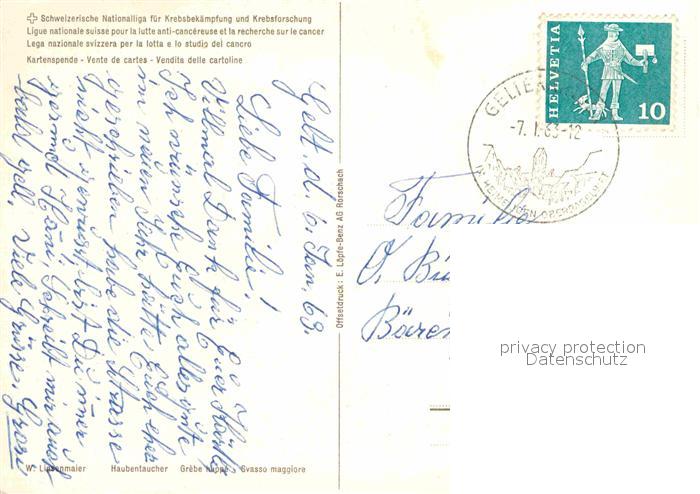 Schweizerische Nationalliga für Krebsbekämpfung und Krebsforschung
Ligue nationale suisse pour la lutte anti-cancéreuse et la recherche sur le cancer
Lega nazionale svizzera per la lotta e lo studio del cancro
Kartenspende - Vente de cartes - Vendita delle cartoline
Gelt. d. 6. Jan. 68.
Liebe Familie!
Villmal Dank für Euer Kärtli
Ich wünsche Euch alles gute
im neuen Jahr hätte Euch eher
geschrieben habe die Strasse
nicht gewusst bist Du imer
schreibt mir auch
bald gell. Viele Grüsse
W. Linsenmaier Haubentaucher Grèbe huppé Svasso maggiore
Offsetdruck: E. Löpfe-Benz AG Rorschach
HELVETIA
10
-7.I.68-12
Familie
O.
Bären
privacy protection
Datenschutz